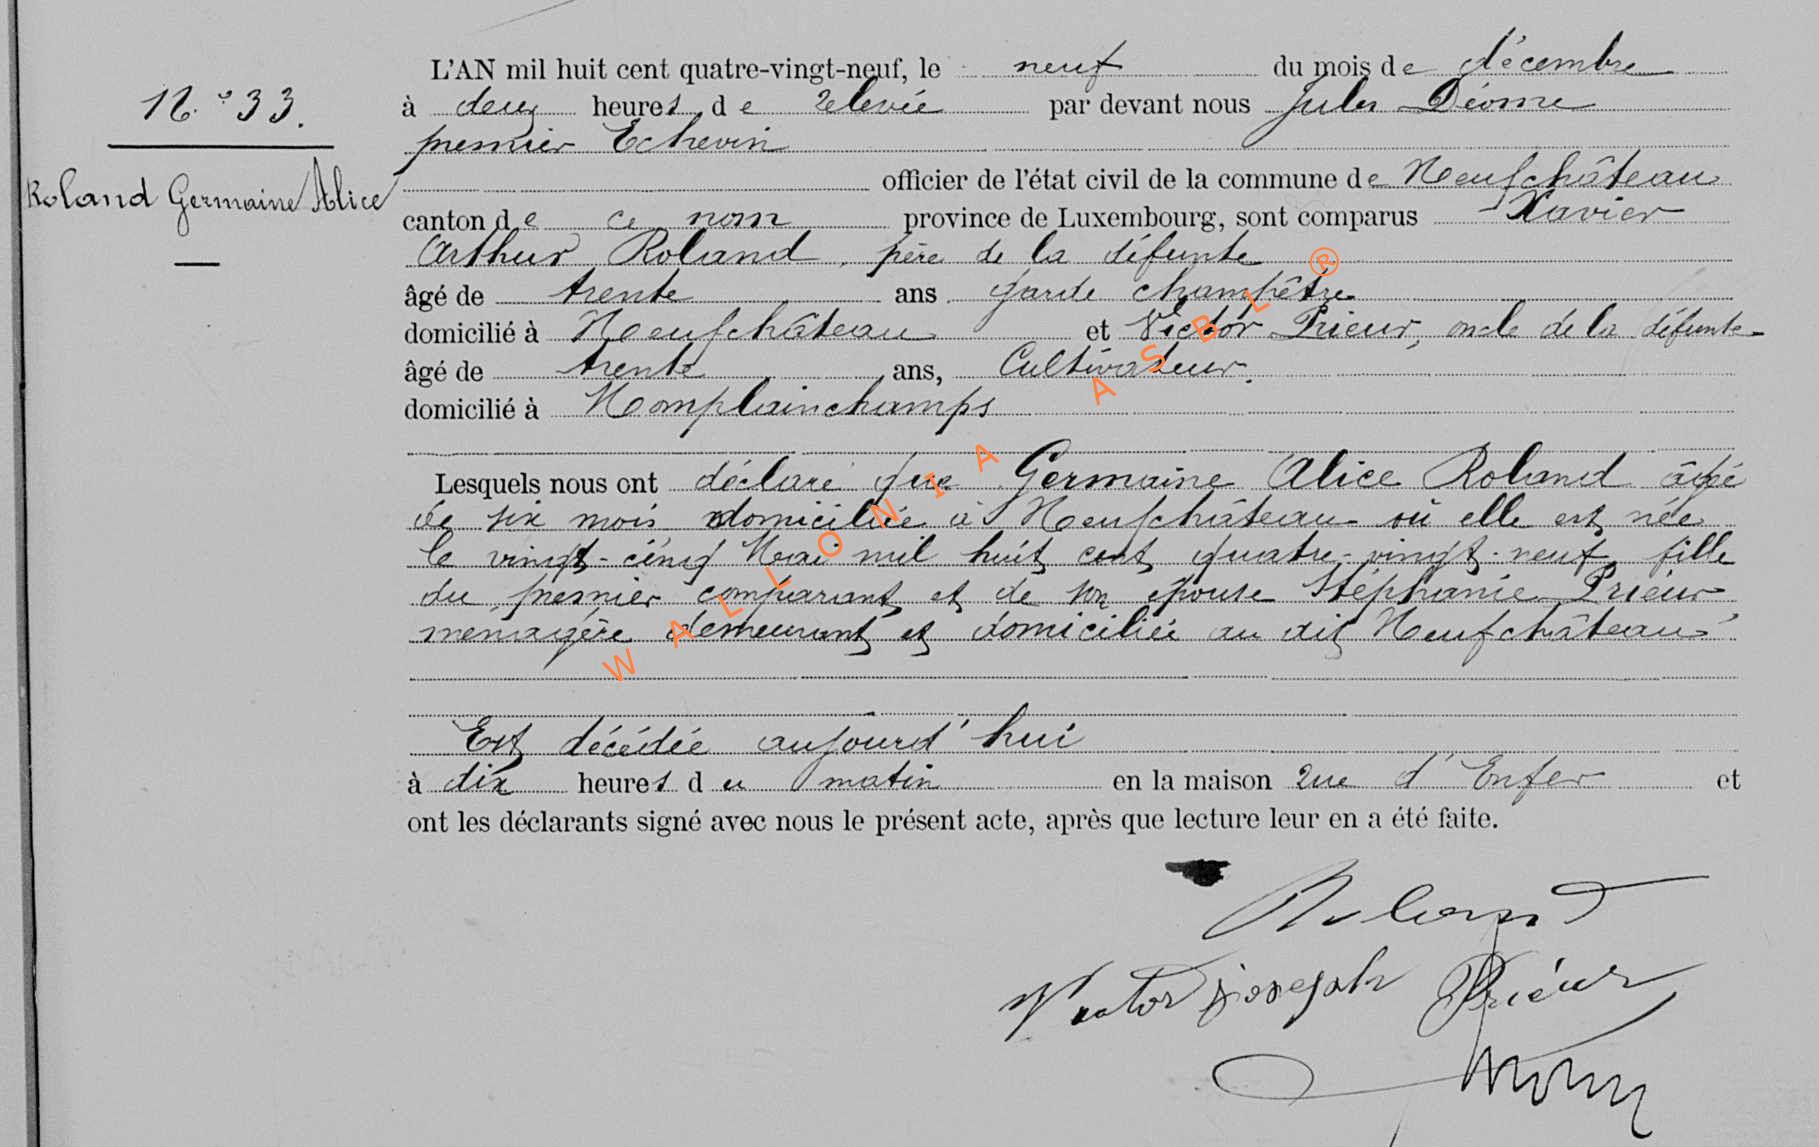 N.° 33.
Roland Germaine Alice
L'AN mil huit cent quatre-vingt-neuf, le neuf du mois de décembre
à deux heures de relevée par devant nous Jules Déome
premier Echevin
officier de l'état civil de la commune de Neufchâteau
canton de ce nom province de Luxembourg, sont comparus Xavier
Arthur Roland, père de la défunte
âgé de trente ans garde champêtre
domicilié à Neufchâteau et Victor Prieur, oncle de la défunte
âgé de trente ans, Cultivateur.
domicilié à Namplainchamps
Lesquels nous ont déclaré que Germaine Alice Roland âgée
de six mois domiciliée à Neufchâteau où elle est née
le vingt-cinq Mai mil huit cent quatre-vingt-neuf, fille
du premier comparant et de son épouse Stéphanie Prieur
ménagère demeurant et domiciliée au dit Neufchâteau
Est décédée aujourd'hui
à dix heures du matin en la maison rue d'Enfer et
ont les déclarants signé avec nous le présent acte, après que lecture leur en a été faite.
Roland
Victor joseph Prieur
WALLONIA ASBL ®